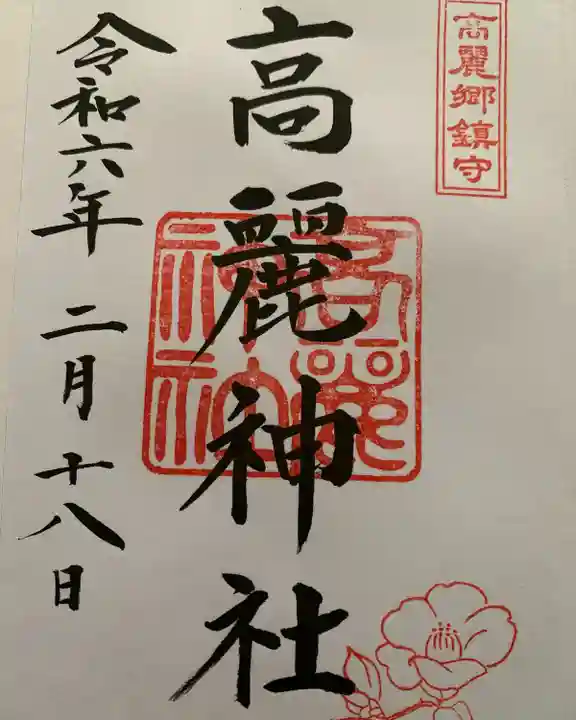 高麗郷鎮守
高麗神社
令和六年 二月 十八日